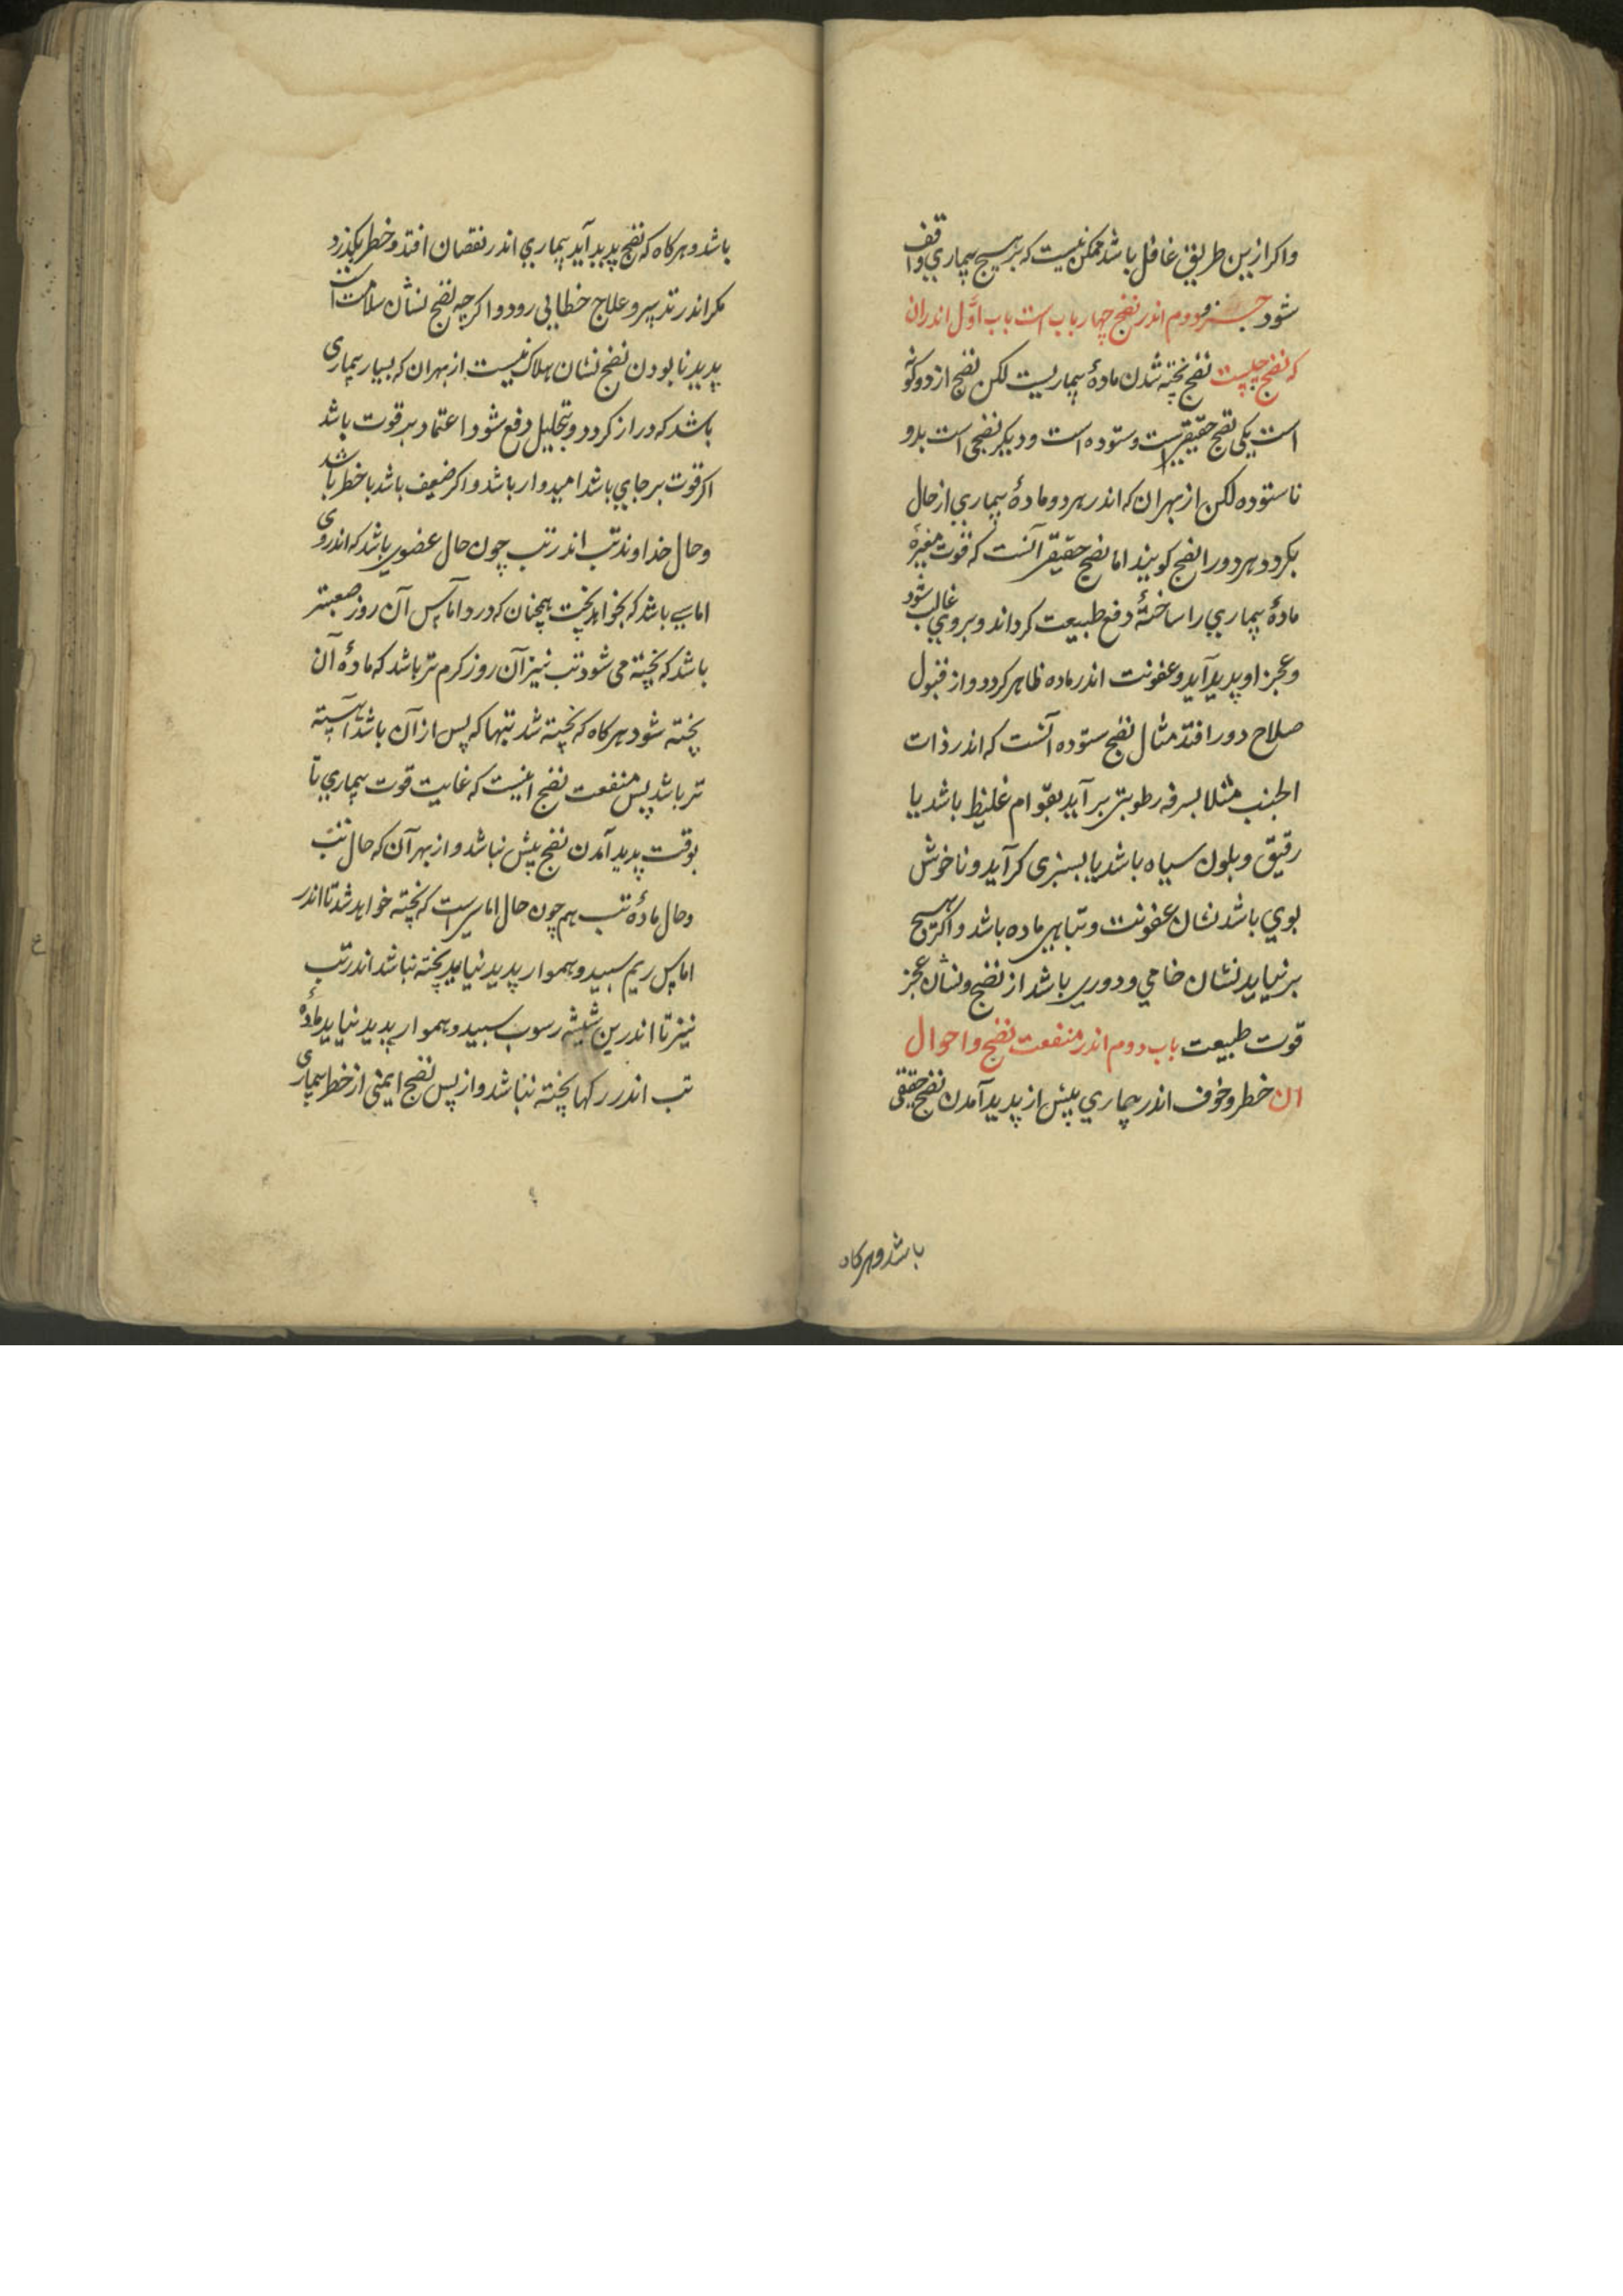 واکر ازین طریق غافل باشد ممکن نیست که بر هیچ بیماری واقف
شود جزو دوم اندر نضج چهار باب است باب اوّل اندران
که نضج چیست نضج پخته شدن مادهٔ بیماریست لکن نضج از دو کونه
است یکی نضج حقیقی است و ستوده است و دیکر نضجی است بد و
ناستوده لکن از بهر ان که اندر هر دو مادهٔ بیماری از حال
بکردد هر دو را نضج کویند اما نضج حقیقی آنست که قوت مغیرهٔ
مادهٔ بیماری را ساختهٔ دفع طبیعت کرداند و بروی غالب شود
و عجز او پدید آید و عفونت اندر ماده ظاهر کردد و از قبول
صلاح دور افتد مثال نضج ستوده آنست که اندر ذات
الجنب مثلا بسرفه رطوبتی بر آید بقوام غلیظ باشد یا
رقیق و بلون سیاه باشد یا بسبزی کرآید و ناخوش
بوی باشد نشان عفونت و تباهی ماده باشد و اکر هیچ
برنیاید نشان خامی و دوری باشد از نضج و نشان عجز
قوت طبیعت باب دوم اندر منفعت نضج و احوال
ان خطر و خوف اندر بیماری پیش از پدید آمدن نضج حقیقی
باشد و هرکاه
باشد و هرکاه که نضج پدید آید بیماری اندر نقصان افتد و خطر بکذرد
مکر اندر تدبیر و علاج خطایی رود و اکرچه نضج نشان سلامت است
پدید نا بودن نضج نشان هلاک نیست از بهر ان که بسیار بیماری
باشد که دراز کردد و بتحلیل دفع شود اعتماد بر قوت باشد
اکر قوت بر جای باشد امیدوار باشد و اکر ضعیف باشد با خطر باشد
و حال خداوند تب اندر تب چون حال عضوی باشد که اندر وی
اماسی باشد که بخواهد پخت همچنان که درد اماس آن روز صعبتر
باشد که پخته می شود تب نیز آن روز کرم تر باشد که مادهٔ آن
پخته شود هرکاه که پخته شد تبها که پس از آن باشد آهسته
تر باشد پس منفعت نضج اینست که غایت قوت بیماری تا
بوقت پدید آمدن نضج بیش نباشد و از بهر آن که حال تب
و حال مادهٔ تب هم چون حال اماسی است که پخته خواهد شد تا اندر
اماس ریم سپید و هموار پدید نیاید پخته نباشد اندر تب
نیز تا اندرین شیشه رسوب سپید و هموار پدید نیاید مادهٔ
تب اندر رکها پخته نباشد و از پس نضج ایمنی از خطر بیماری